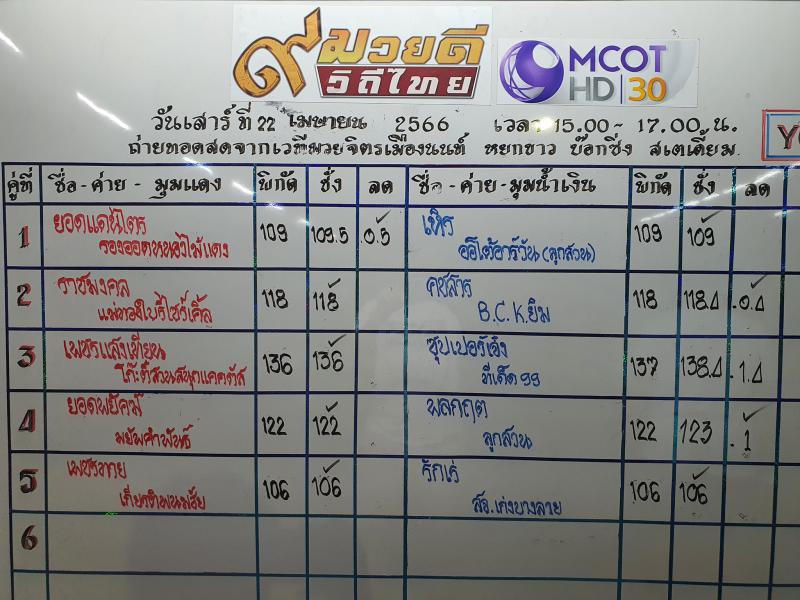 ๙ มวยดี
วิถีไทย
MCOT
HD 30
วันเสาร์ ที่ 22 เมษายน 2566 เวลา 15.00 - 17.00 น.
ถ่ายทอดสดจากเวทีมวยจิตรเมืองนนท์ หยกขาว บ๊อกซิ่ง สเตเดี้ยม
คู่ที่ ชื่อ - ค่าย - มุมแดง พิกัด ชั่ง ลด ชื่อ - ค่าย - มุมน้ำเงิน พิกัด ชั่ง ลด
1 ยอดแดนไตร 109 109.5 .0.5 เทิร 109 109
รองออดหนองไม้แดง ออโต้อาร์วัน (ลูกสวน)
2 ราชมงคล 118 118 คชสาร 118 118.4 .0.4
แมททองใบรีไซร์เคิ้ล B.C.K.ยิม
3 เพชรแสงเทียน 136 136 ซุปเปอร์เจ๋ง 137 138.4 .1.4
ที่เด็ด 99
4 ยอดพยัคฆ์ 122 122 พลกฤต 122 123 .1
มยัพคำพันธ์ ลูกสวน
5 เพชรทาย 106 106 รักเร่ 106 106
ส.จ.เก่งบางลาย
6